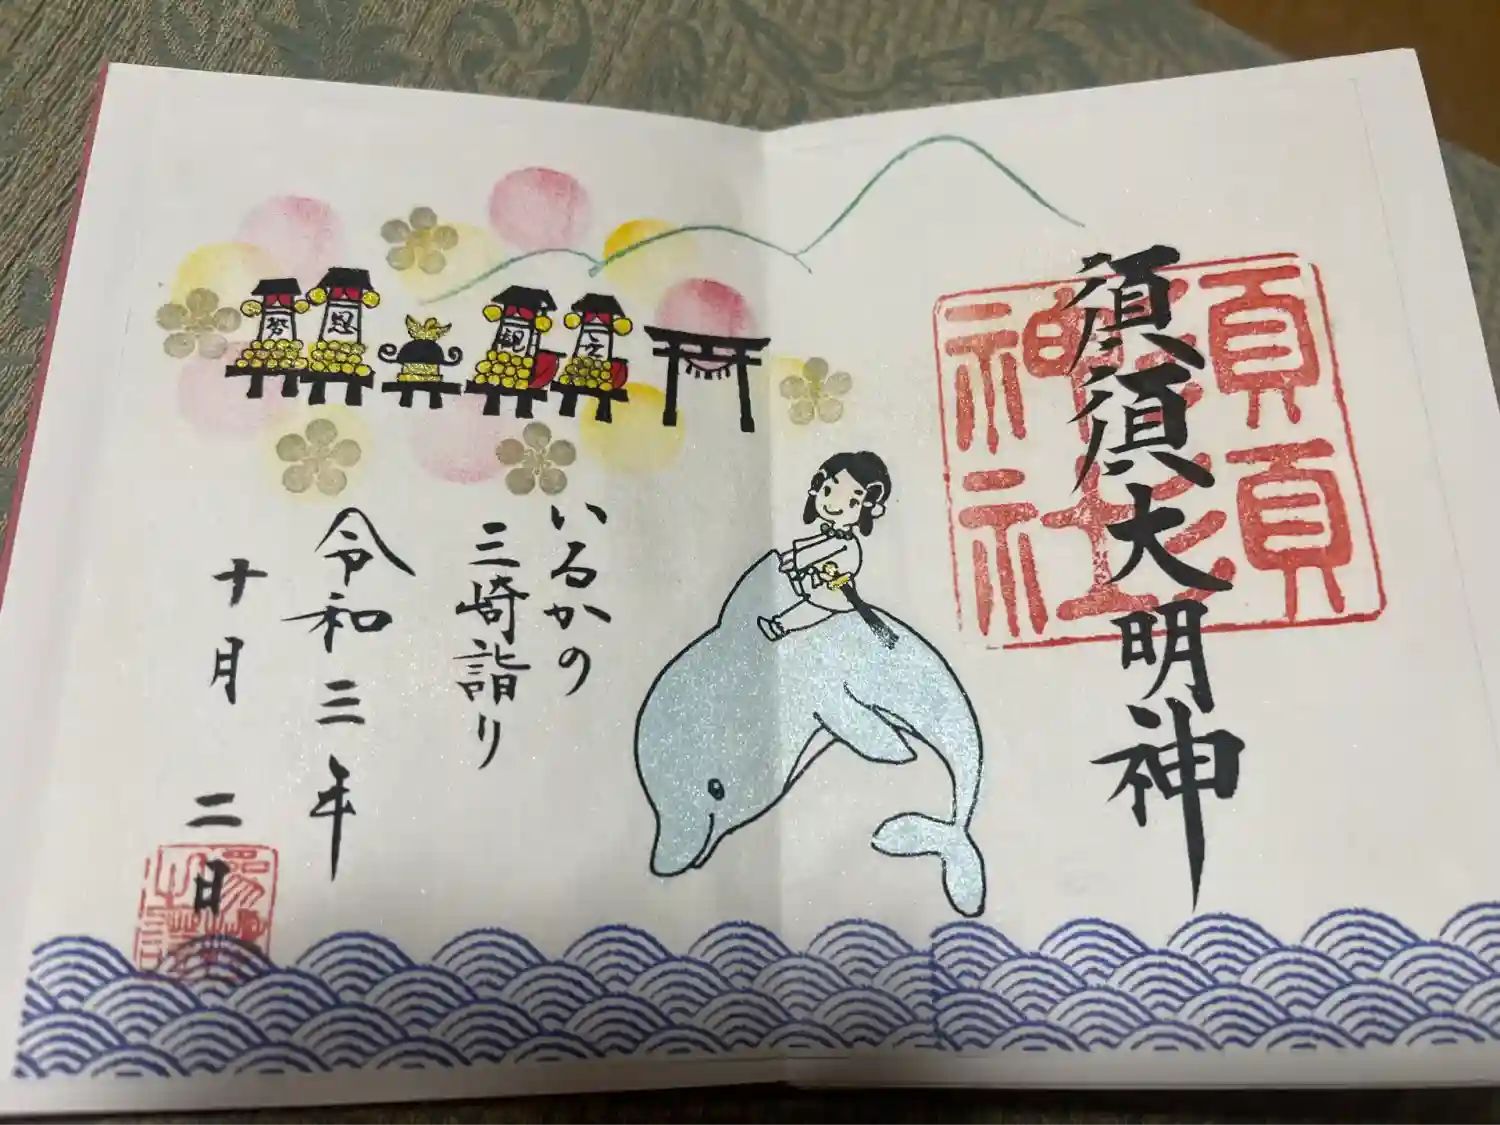 須須大明神
須須
神社
いるかの
三崎詣り
令和三年
十月二日